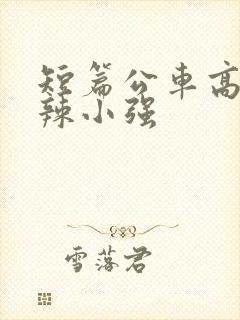 短篇公车高
辣小强
雪落君